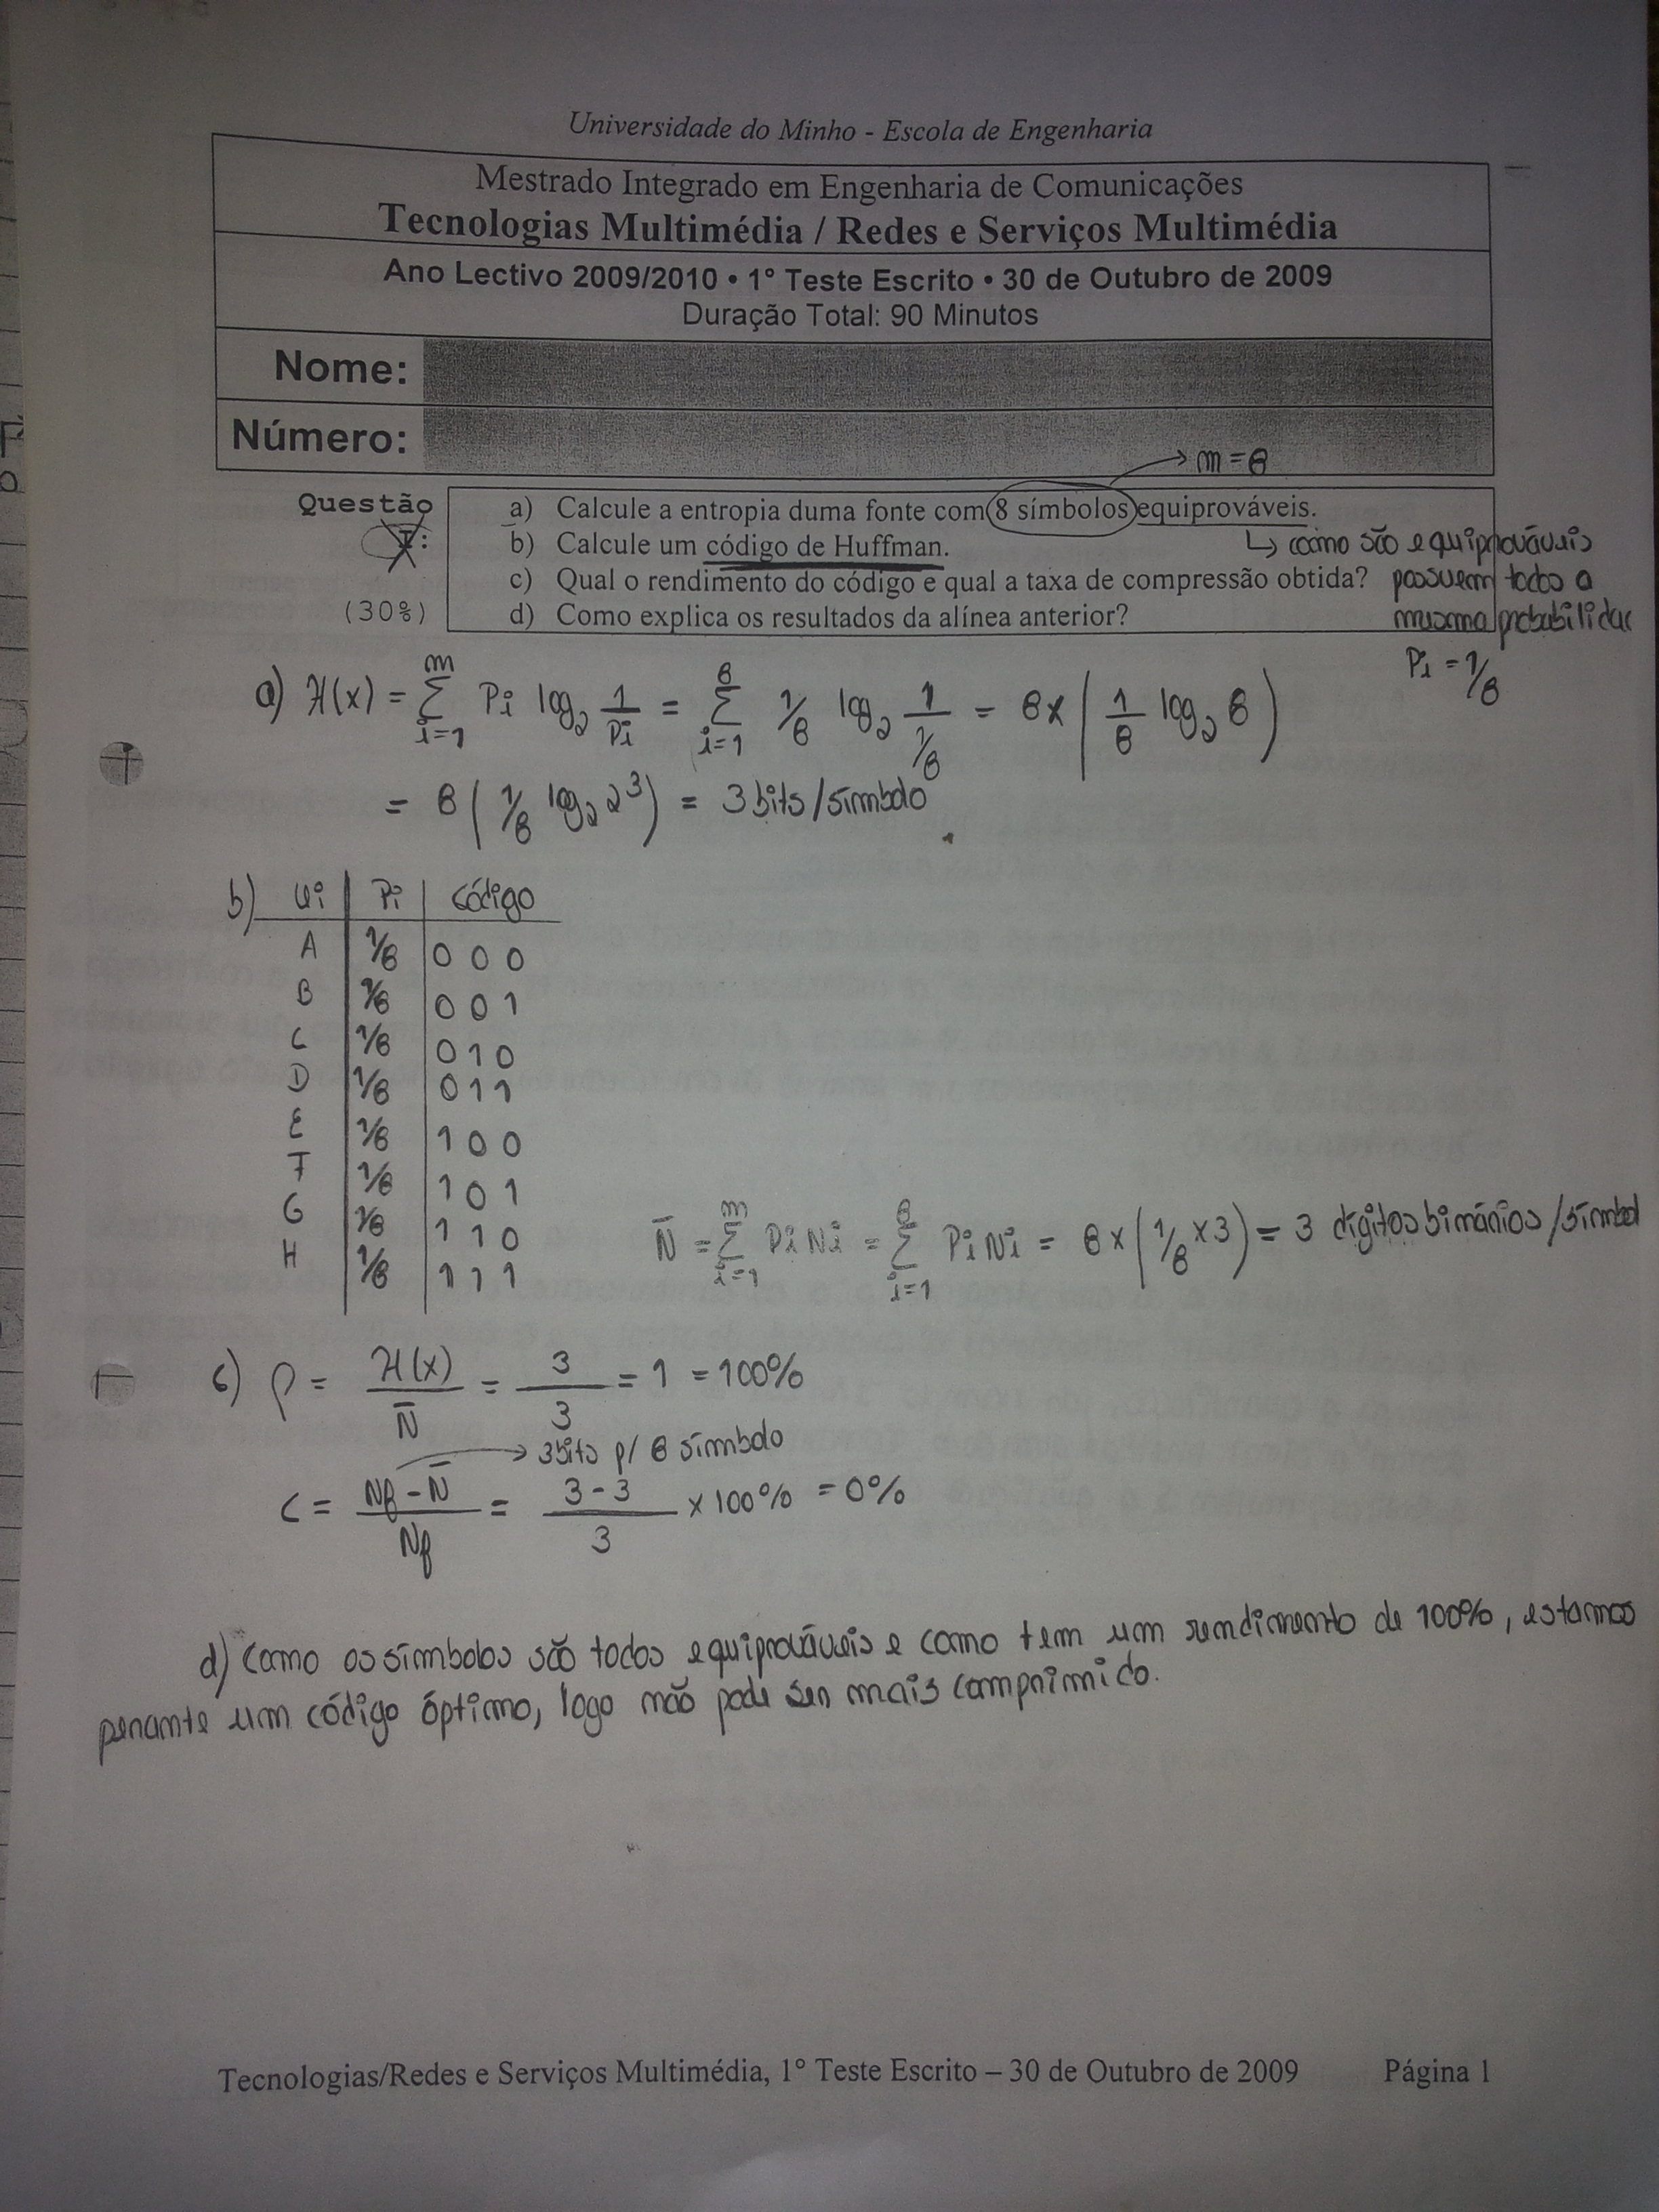 Universidade do Minho - Escola de Engenharia
Mestrado Integrado em Engenharia de Comunicações
Tecnologias Multimédia / Redes e Serviços Multimédia
Ano Lectivo 2009/2010 • 1º Teste Escrito • 30 de Outubro de 2009
Duração Total: 90 Minutos
Nome:
Número:
→ m = 8
Questão
I:
(30%)
a) Calcule a entropia duma fonte com 8 símbolos equiprováveis.
b) Calcule um código de Huffman.
c) Qual o rendimento do código e qual a taxa de compressão obtida?
d) Como explica os resultados da alínea anterior?
↳ como são equiprováveis
possuem todos a
mesma probabilidad
Pi = 1/8
a) H(x) = m Σ i=1 Pi log2 1/Pi = 8 Σ i=1 1/8 log2 1/(1/8) = 8 x (1/8 log2 8)
= 8 (1/8 log2 2^3) = 3 bits/símbolo
b) ui | Pi | Código
A 1/8 0 0 0
B 1/8 0 0 1
C 1/8 0 1 0
D 1/8 0 1 1
E 1/8 1 0 0
F 1/8 1 0 1
G 1/8 1 1 0
H 1/8 1 1 1
N̄ = m Σ i=1 Pi Ni = 8 Σ i=1 Pi Ni = 8 x (1/8 x 3) = 3 dígitos binários/símbol
c) ρ = H(x)/N̄ = 3/3 = 1 = 100%
→ 3 bits p/ 8 símbolo
C = (Nf - N̄)/Nf = (3 - 3)/3 x 100% = 0%
d) Como os símbolos são todos equiprováveis e como tem um rendimento de 100%, estamos
perante um código óptimo, logo não pode ser mais comprimido.
Tecnologias/Redes e Serviços Multimédia, 1º Teste Escrito – 30 de Outubro de 2009 Página 1